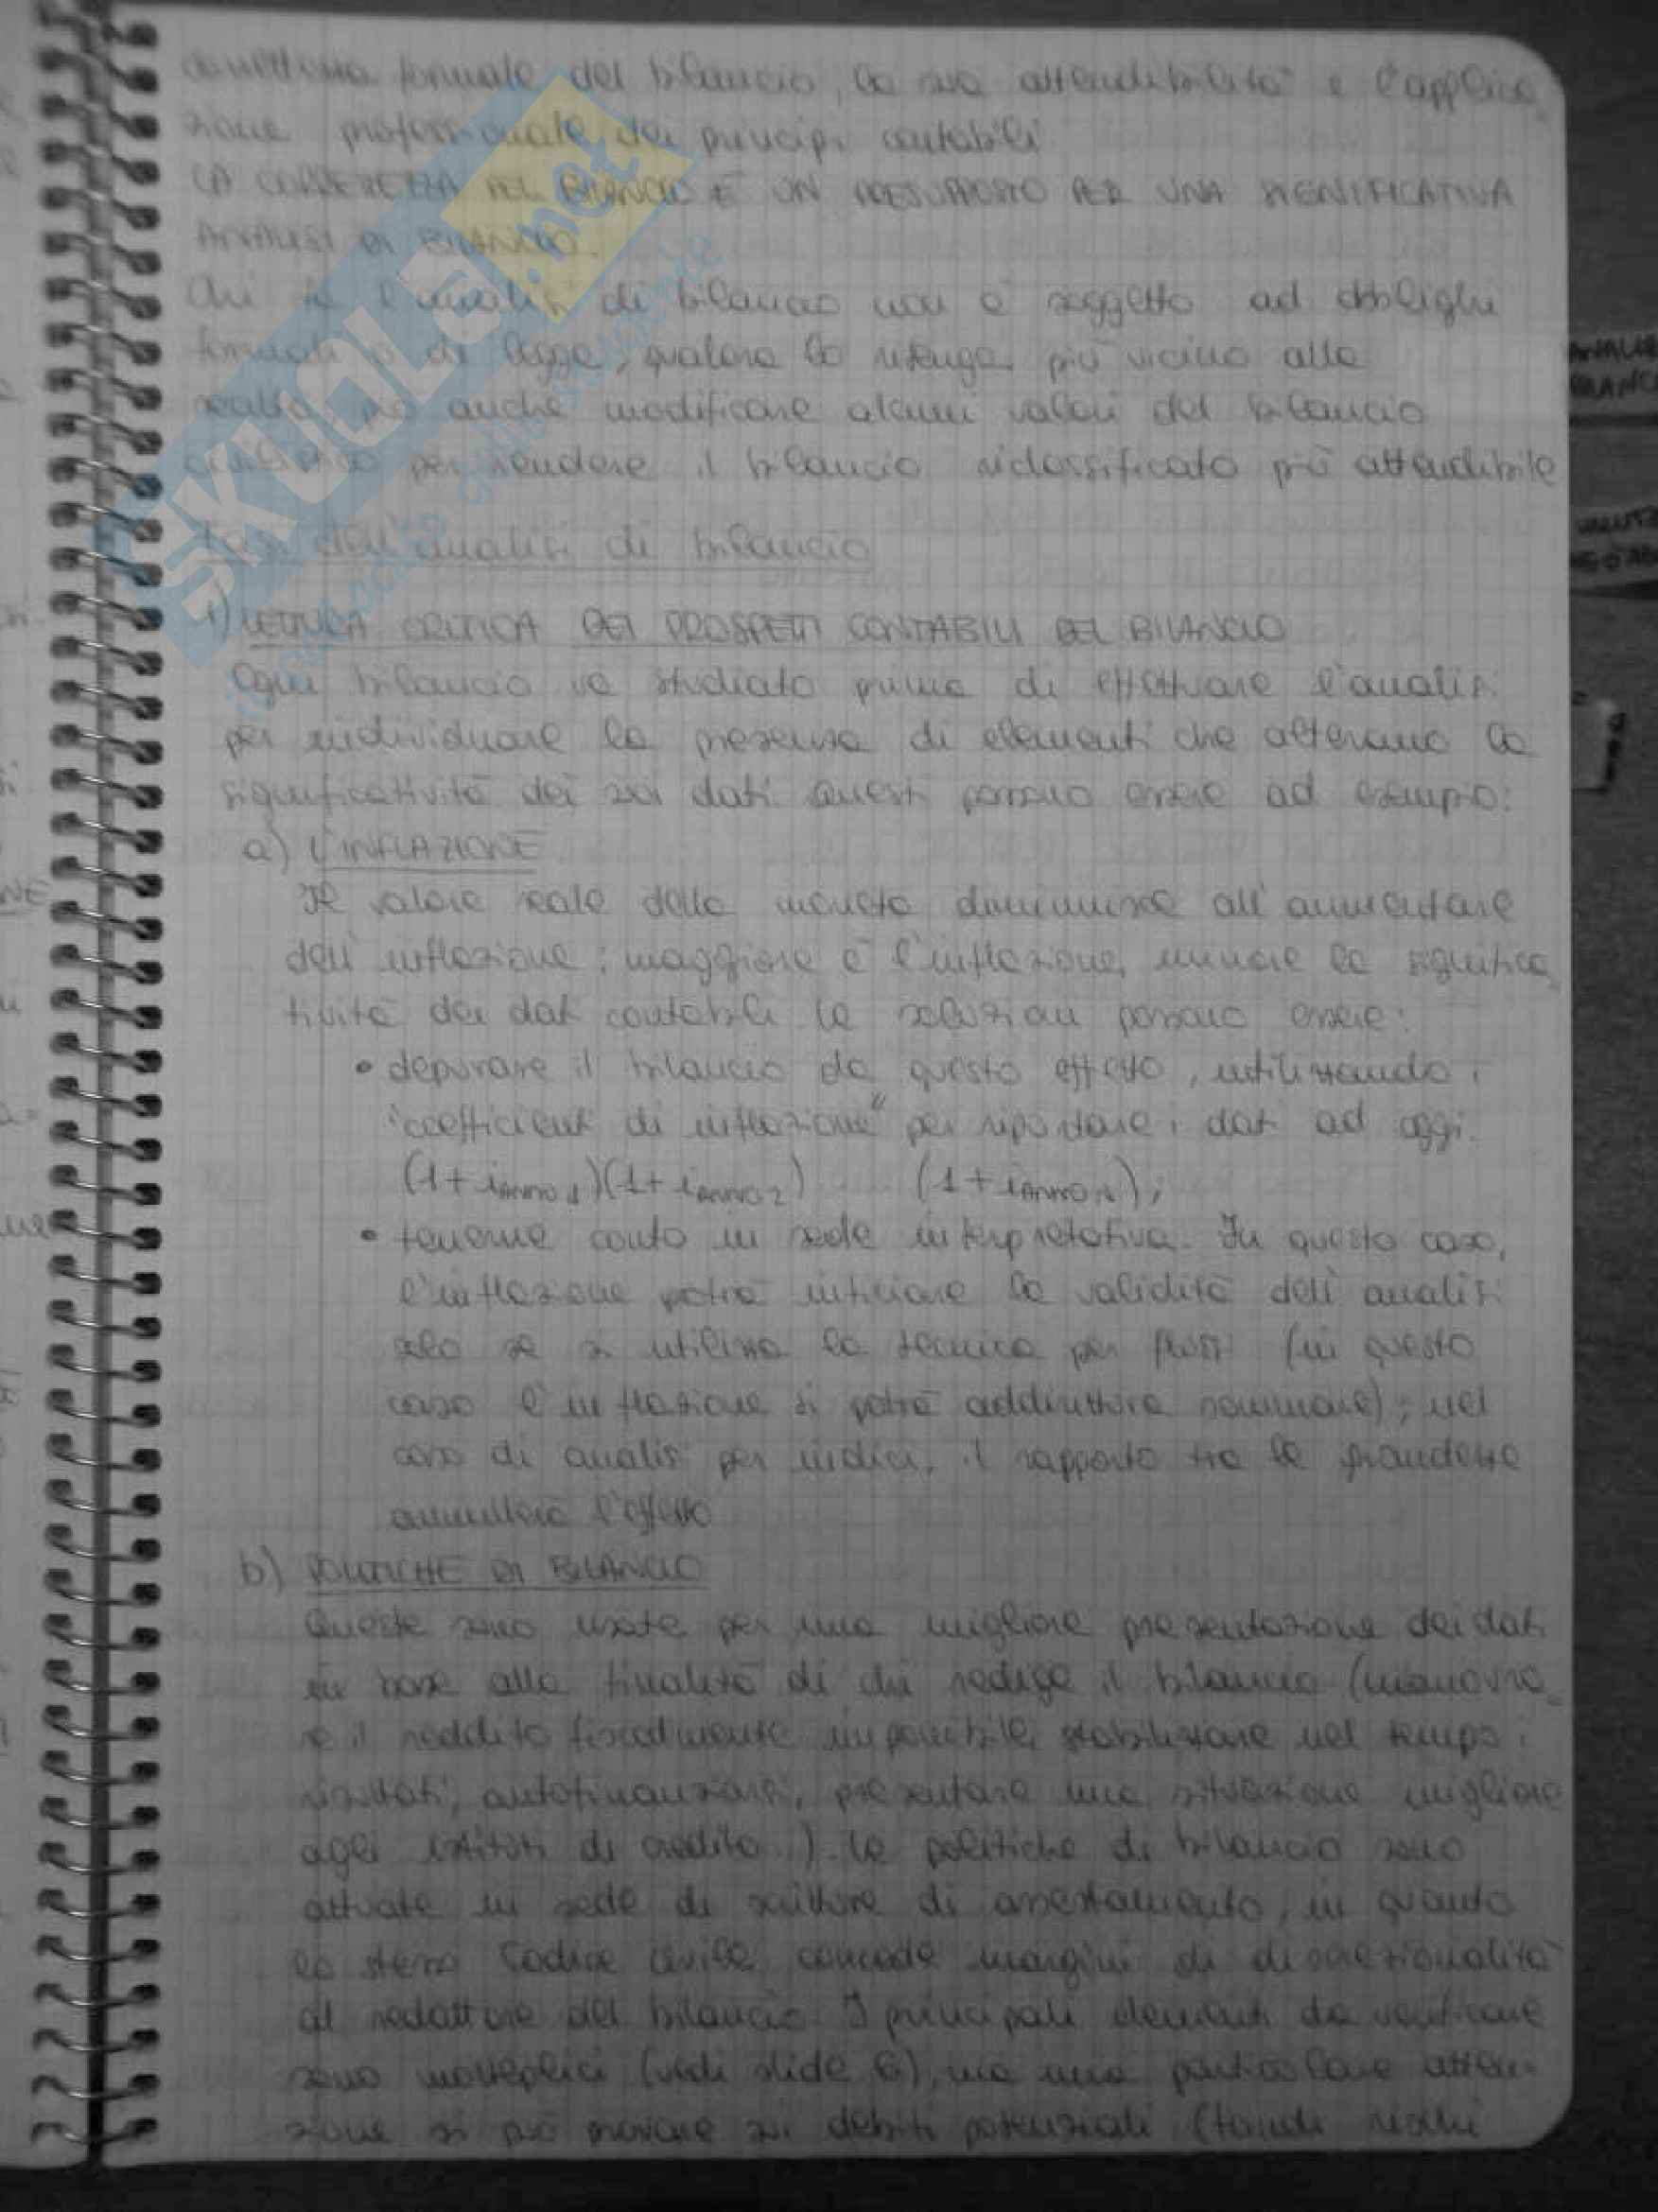 correttezza formale del bilancio, la sua attendibilità e l'applica
zione professionale dei principi contabili
LA CORRETTEZZA DEL BILANCIO È UN PRESUPPOSTO PER UNA SIGNIFICATIVA
ANALISI DI BILANCIO.
Chi fa l'analisi di bilancio non è soggetto ad obblighi
formali o di legge, qualora lo ritenga più vicino alla
realtà, può anche modificare alcuni valori del bilancio
per rendere il bilancio riclassificato più attendibile
Fasi dell'analisi di bilancio
1) LETTURA CRITICA DEI PROSPETTI CONTABILI DEL BILANCIO
Ogni bilancio va studiato prima di effettuare l'analisi
per individuare la presenza di elementi che alterano la
significatività dei suoi dati. Questi possono essere ad esempio:
a) L'INFLAZIONE
Il valore reale della moneta diminuisce all'aumentare
dell'inflazione; maggiore è l'inflazione, minore la significa
tività dei dati contabili. Le soluzioni possono essere:
• depurare il bilancio da questo effetto, utilizzando i
"coefficienti di inflazione" per riportare i dati ad oggi.
(1+i ANNO 1)(1+i ANNO 2) ..... (1+i ANNO n);
• tenerne conto in sede interpretativa. In questo caso,
l'inflazione potrà inficiare la validità dell'analisi
solo se si utilizza la tecnica per flussi (in questo
caso l'inflazione si potrà addirittura sommare); nel
caso di analisi per indici, il rapporto tra le grandezze
annullerà l'effetto
b) POLITICHE DI BILANCIO
Queste sono usate per una migliore presentazione dei dati
in base alla finalità di chi redige il bilancio (manovra
re il reddito fiscalmente imponibile, stabilizzare nel tempo i
risultati, autofinanziarsi, presentare una situazione migliore
agli istituti di credito..). Le politiche di bilancio sono
attuate in sede di scritture di assestamento, in quanto
lo stesso Codice civile concede margini di discrezionalità
al redattore del bilancio. I principali elementi da verificare
sono molteplici (vedi slide 6), ma una particolare atten
zione si può provare sui debiti potenziali (fondi rischi
SKUOLA.net